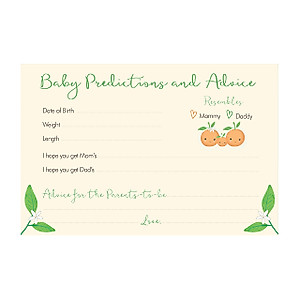 Baby Predictions and Advice
Resembles
Date of Birth
Mommy Daddy
Weight
Length
I hope you get Mom's
I hope you get Dad's
Advice for the Parents-to-be
Love,